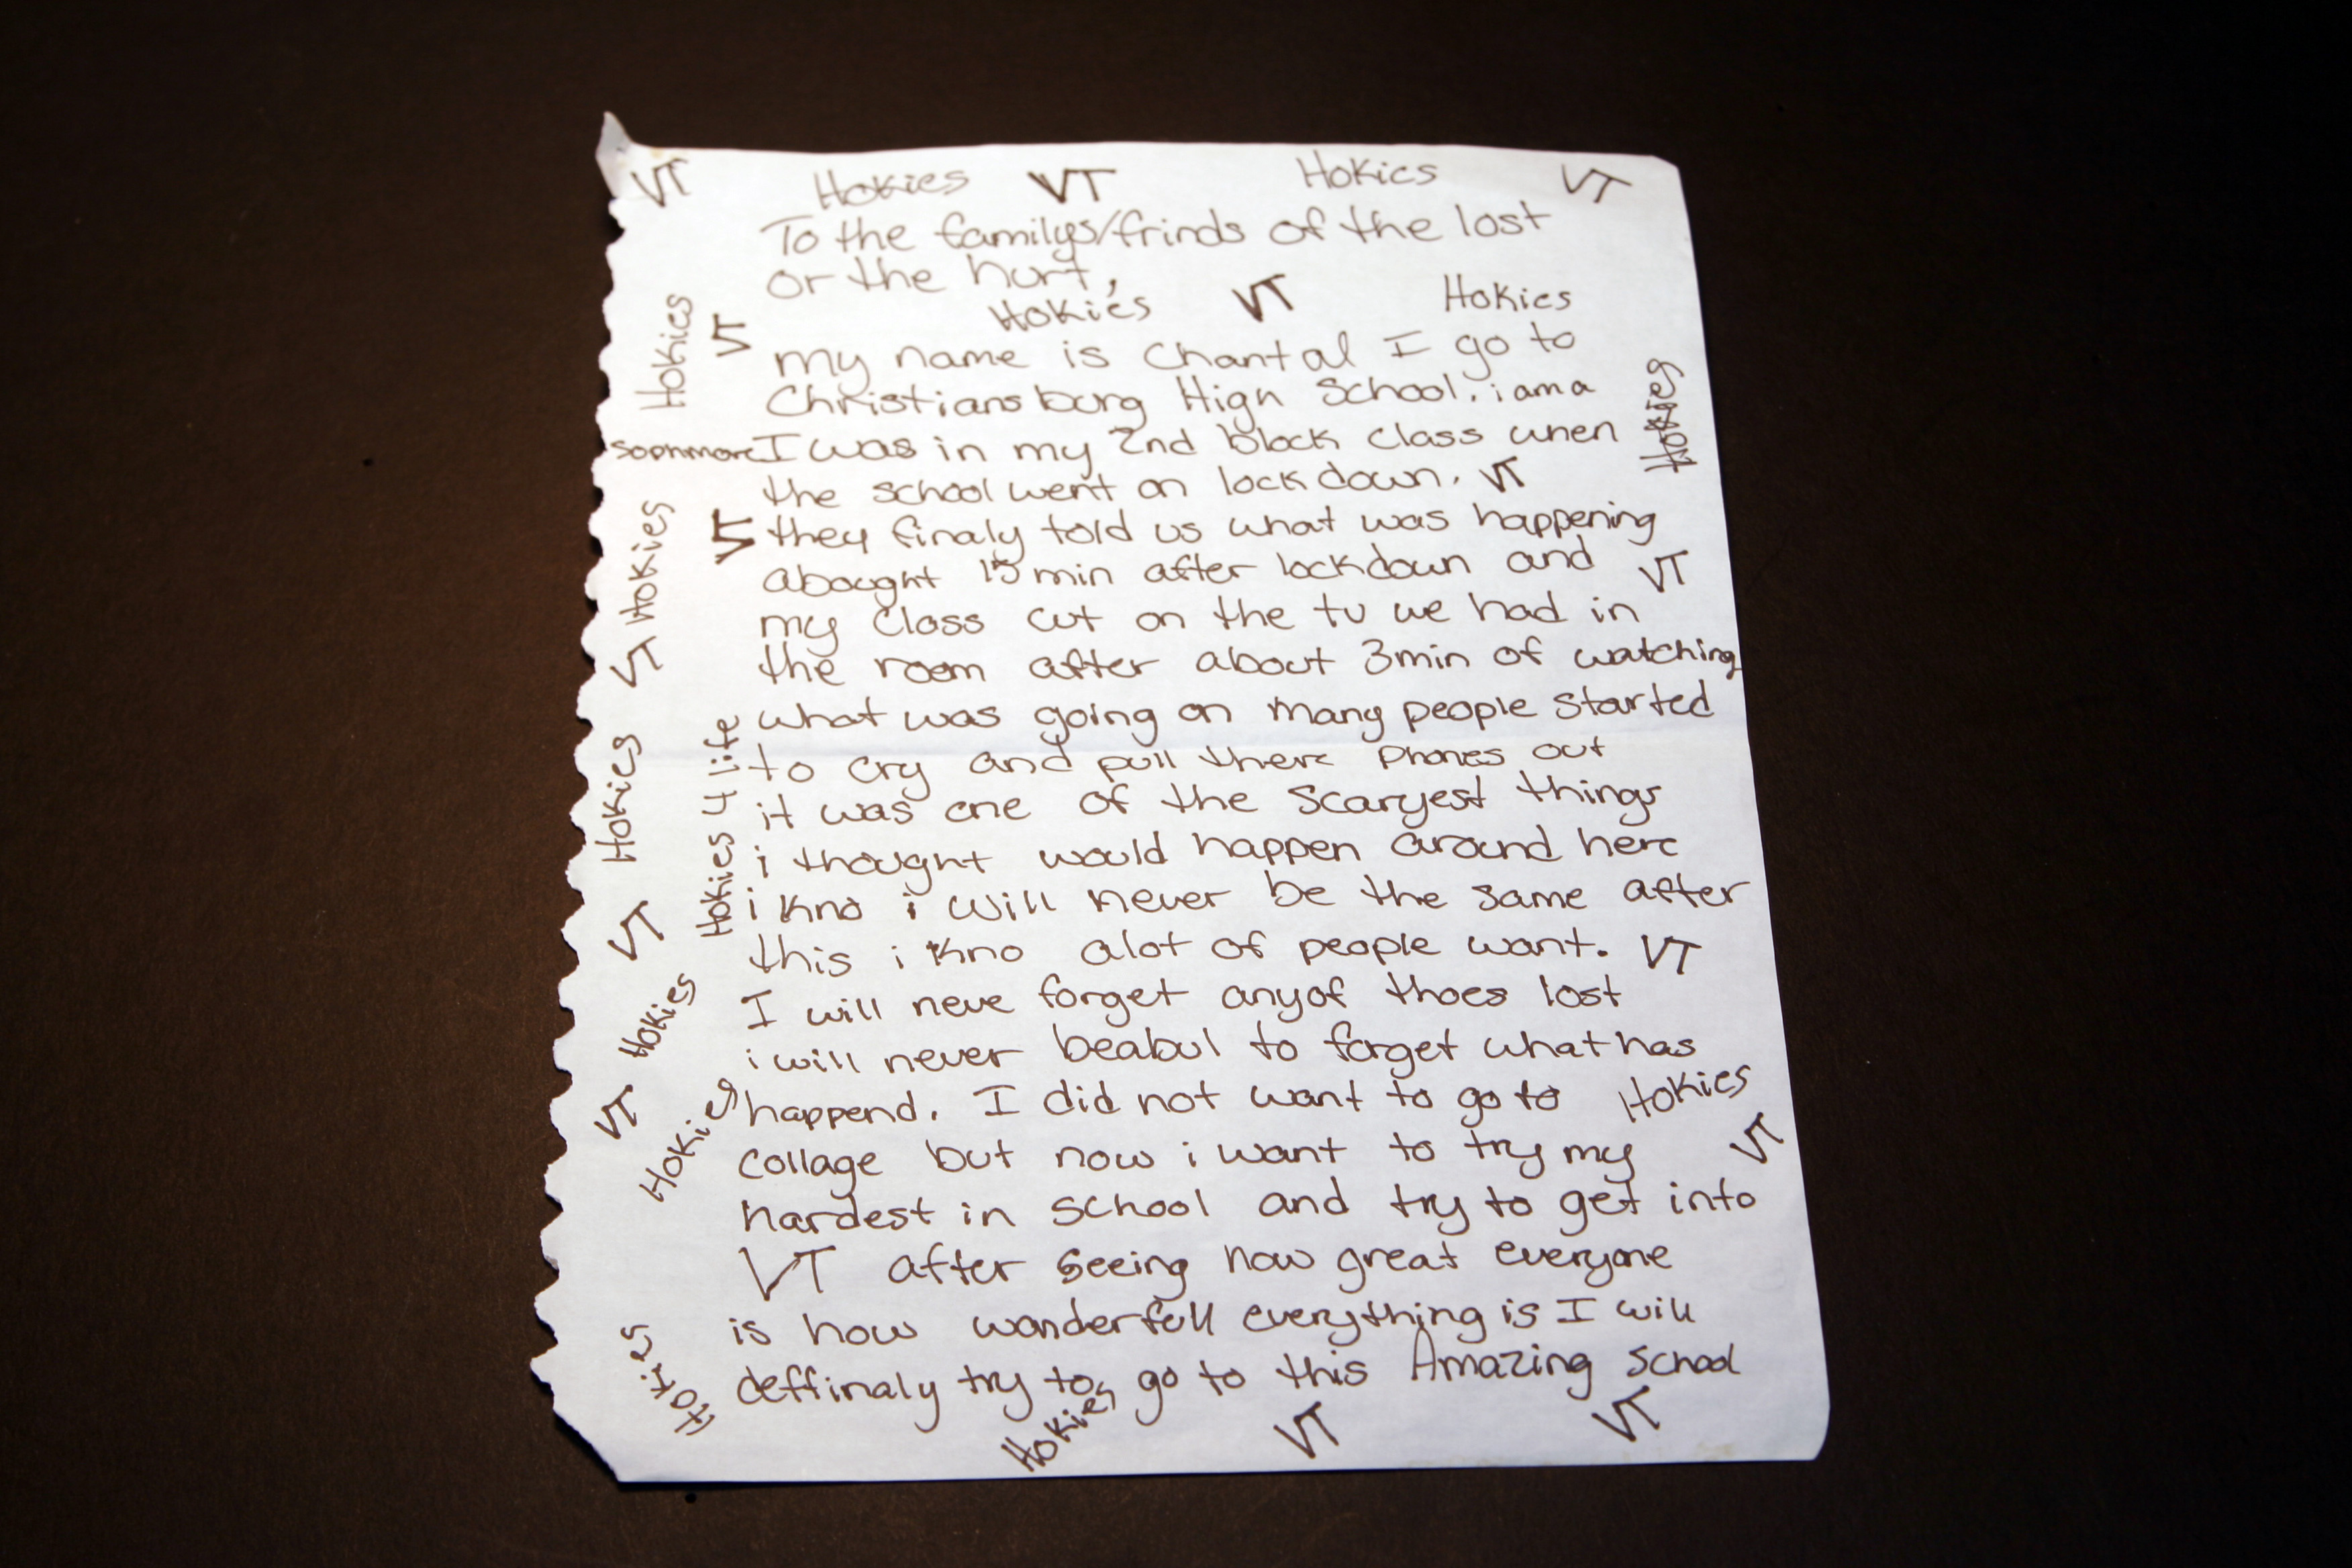 VT Hokies VT Hokies VT
To the familys/frinds of the lost
or the hurt,
Hokies VT Hokies
Hokies
VT
my name is Chantal I go to
Christiansburg High School. i am a
Hokies
sophmore I was in my 2nd block class when
the school went on lockdown. VT
Hokies
VT they finaly told us what was happening
abought 15 min after lockdown and VT
my class cut on the tv we had in
VT
the room after about 3min of watching
what was going on many people started
Hokies
Hokies 4 life
to cry and pull there phones out
it was one of the scaryest things
i thought would happen around here
i kno i will never be the same after
VT
this i kno alot of people want. VT
I will neve forget anyof thoes lost
Hokies
i will never beabul to forget what has
VT
Hokies
happend. I did not want to go to Hokies
collage but now i want to try my VT
hardest in school and try to get into
VT after seeing how great everyone
is how wonderfull everything is I will
Hokies
deffinaly try to go to this Amazing School
Hokies VT VT